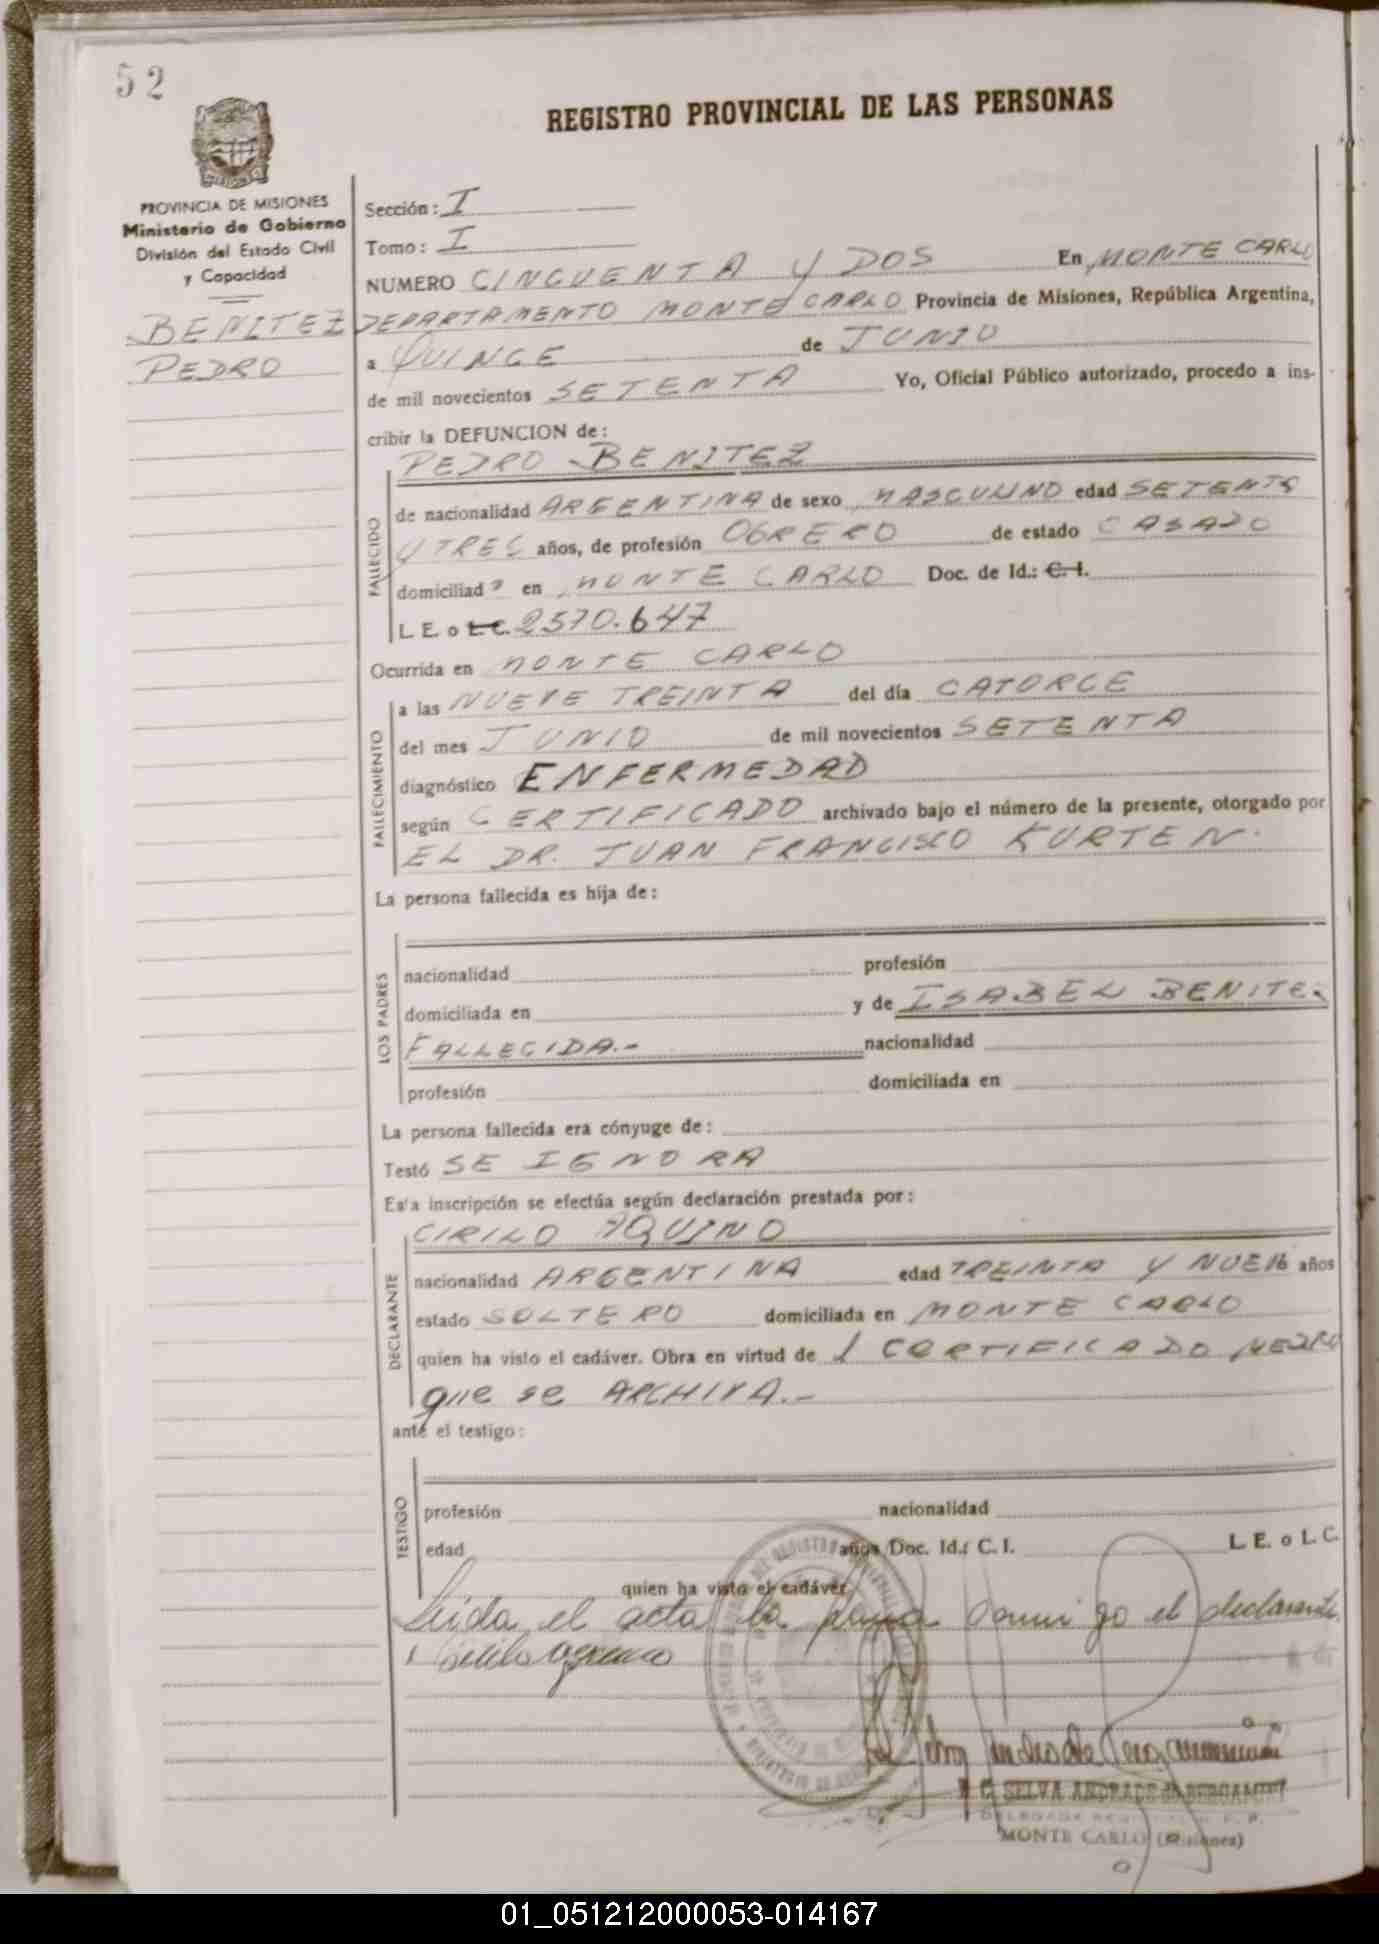 52
REGISTRO PROVINCIAL DE LAS PERSONAS
PROVINCIA DE MISIONES
Ministerio de Gobierno
División del Estado Civil
y Capacidad
BENITEZ
PEDRO
Sección: I
Tomo: I
NUMERO CINCUENTA Y DOS En MONTE CARLO
DEPARTAMENTO MONTE CARLO Provincia de Misiones, República Argentina,
a QUINCE de JUNIO
de mil novecientos SETENTA Yo, Oficial Público autorizado, procedo a ins-
cribir la DEFUNCION de:
PEDRO BENITEZ
FALLECIDO
de nacionalidad ARGENTINA de sexo MASCULINO edad SETENTA
Y TRES años, de profesión OBRERO de estado CASADO
domiciliado en MONTE CARLO Doc. de Id.: C. I.
L. E. o L.C. 2570.647
Ocurrida en MONTE CARLO
FALLECIMIENTO
a las NUEVE TREINTA del día CATORCE
del mes JUNIO de mil novecientos SETENTA
diagnóstico ENFERMEDAD
según CERTIFICADO archivado bajo el número de la presente, otorgado por
EL DR. JUAN FRANCISCO KURTEN.
La persona fallecida es hija de:
LOS PADRES
nacionalidad profesión
domiciliada en y de ISABEL BENITE
FALLECIDA.- nacionalidad
profesión domiciliada en
La persona fallecida era cónyuge de:
Testó SE IGNORA
Esta inscripción se efectúa según declaración prestada por:
CIRILO AQUINO
DECLARANTE
nacionalidad ARGENTINA edad TREINTA Y NUEVE años
estado SOLTERO domiciliada en MONTE CARLO
quien ha visto el cadáver. Obra en virtud de 1 CERTIFICADO MEDICO
que se ARCHIVA.-
ante el testigo:
TESTIGO
profesión nacionalidad
edad años Doc. Id.: C. I. L. E. o L. C.
quien ha visto el cadáver
Leida el acta la firma conmigo el declarante
SELVA ANDRADE de BERGAMINI
MONTE CARLO (Misiones)
01_051212000053-014167